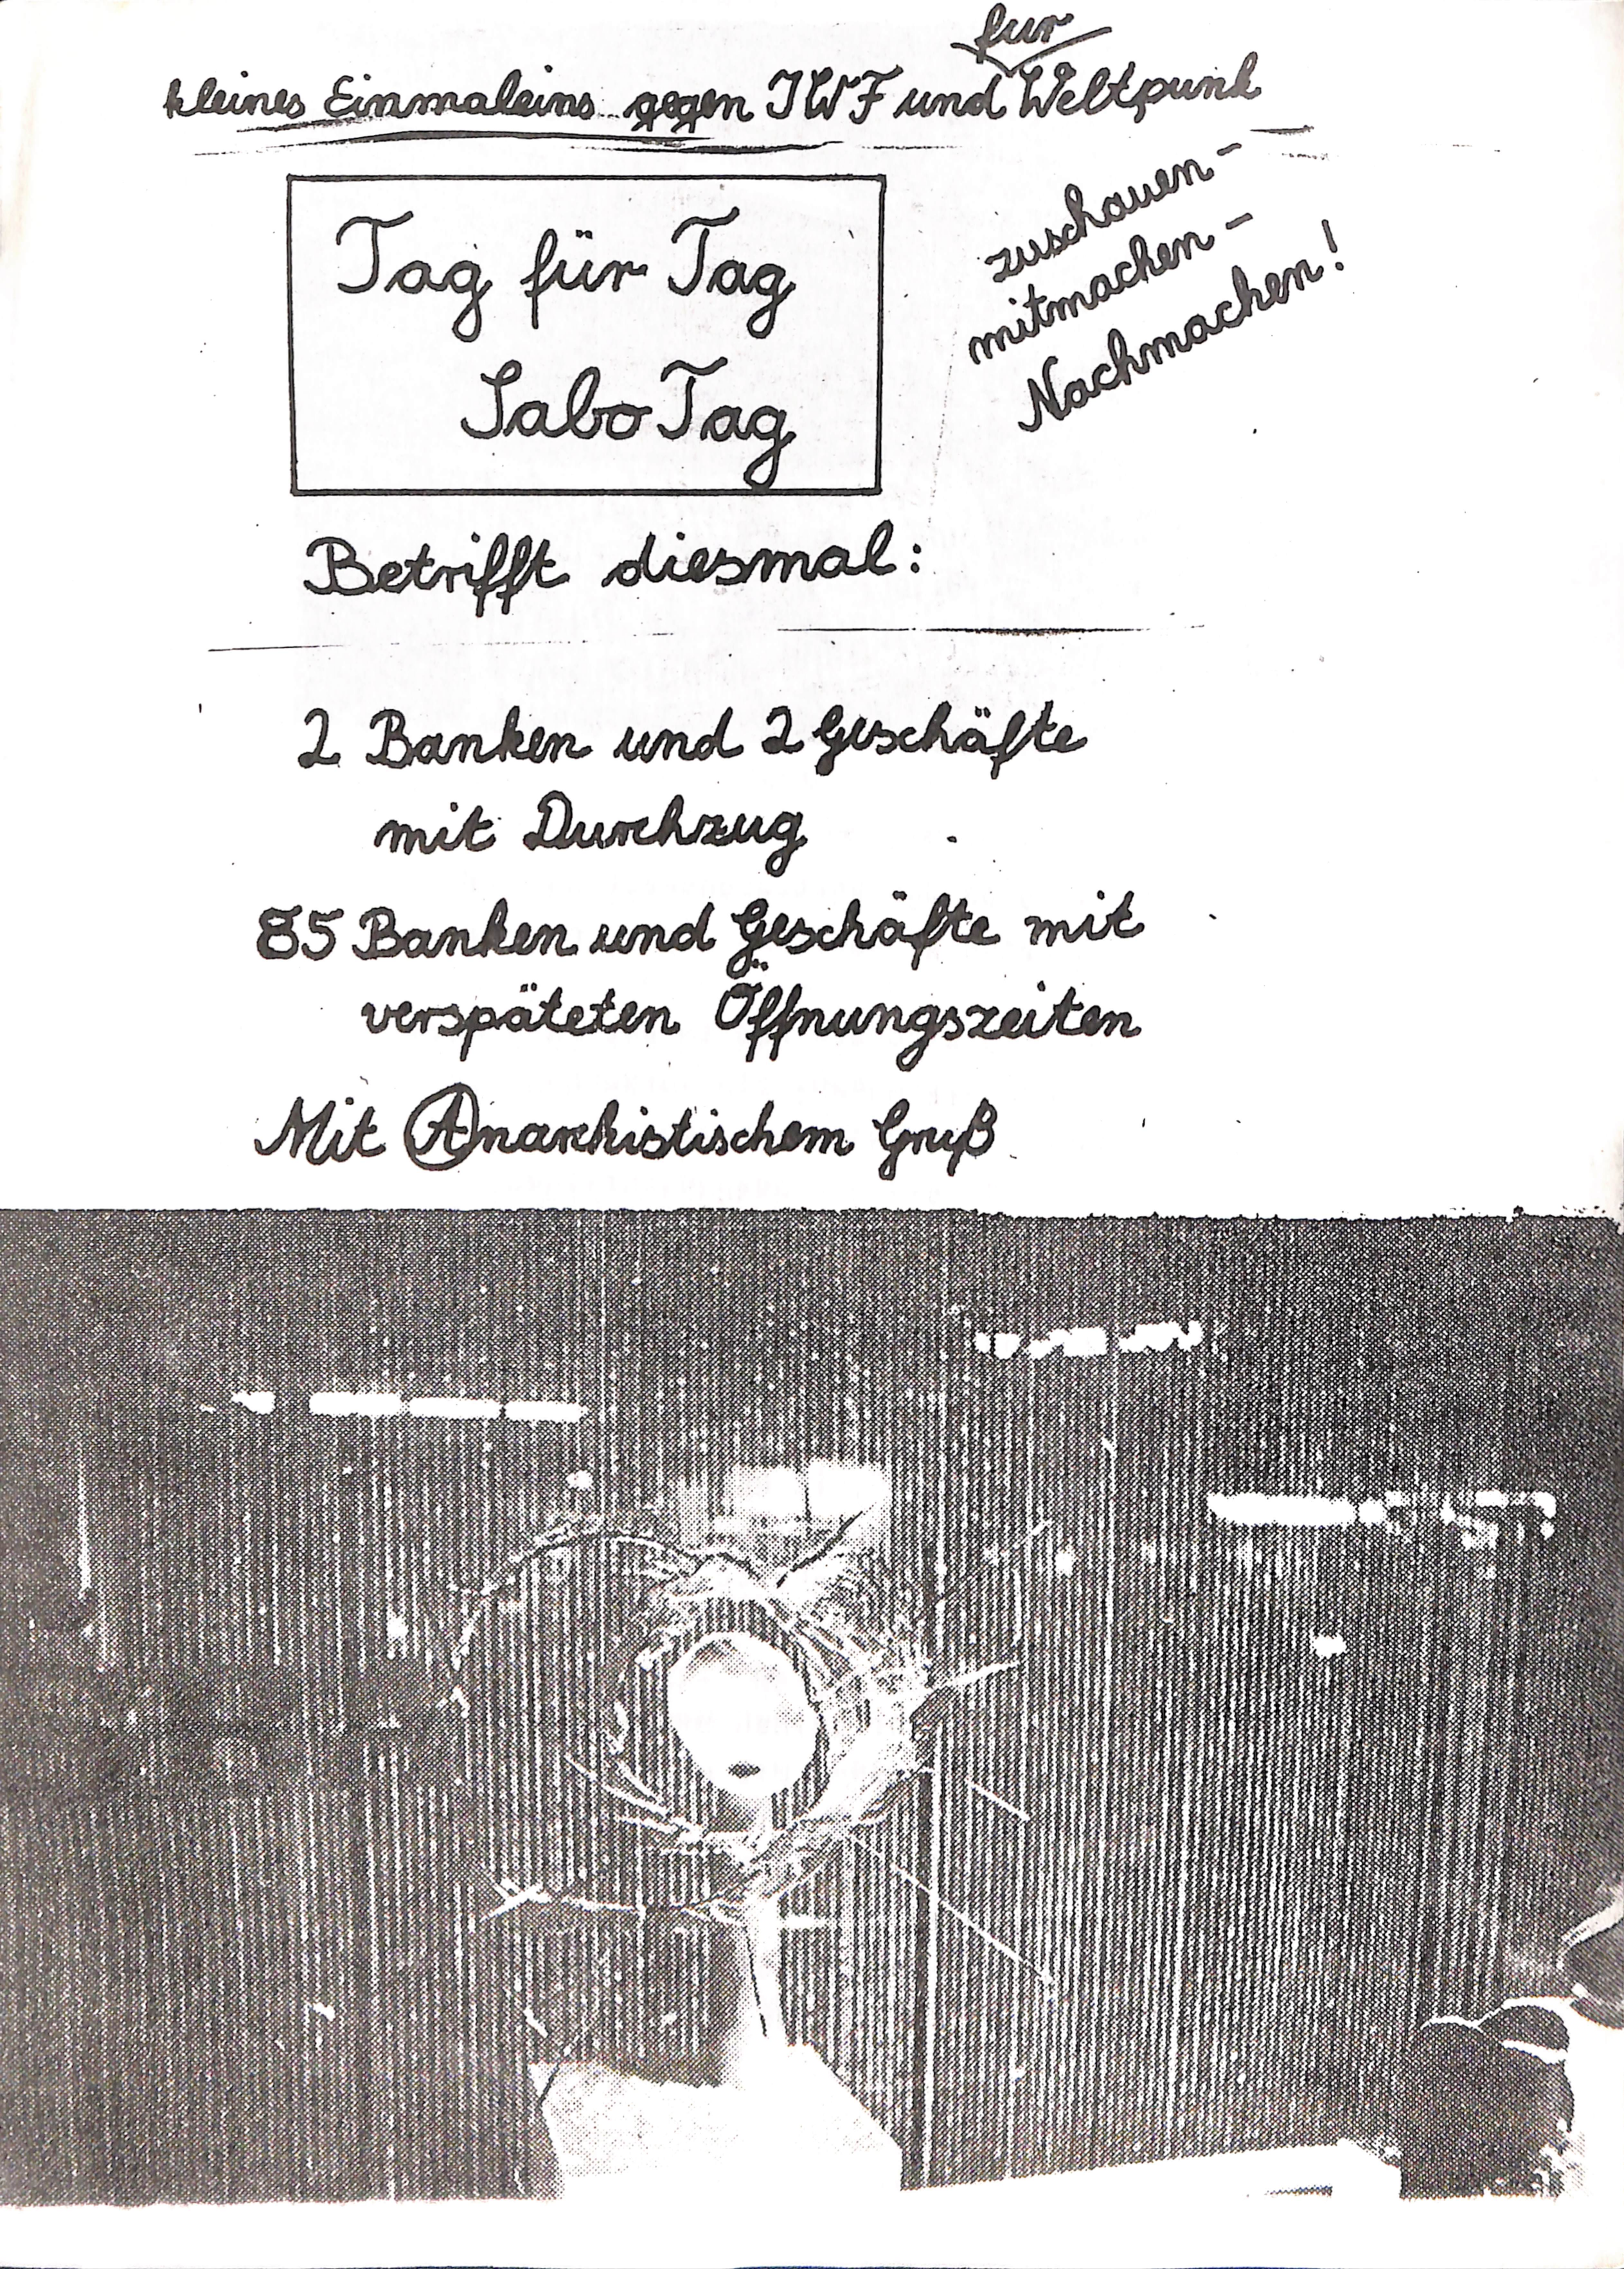 für
kleines Einmaleins gegen IWF und Weltpunk
zuschauen -
mitmachen -
Nachmachen!
Tag für Tag
SaboTag
Betrifft diesmal:
2 Banken und 2 Geschäfte
mit Durchzug
85 Banken und Geschäfte mit
verspäteten Öffnungszeiten
Mit Anarchistischem Gruß